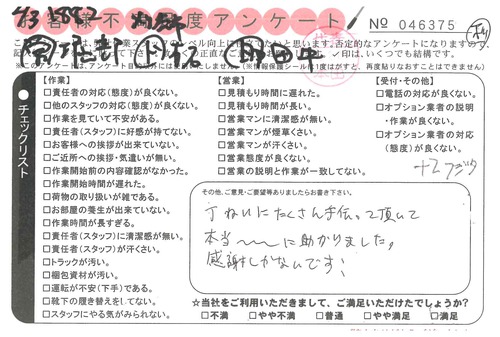 お客様不満足度アンケート
No 046375
【作業】
□責任者の対応(態度)が良くない。
□他のスタッフの対応(態度)が良くない。
□作業を見ていて不安がある。
□責任者(スタッフ)に好感が持てない。
□お客様への挨拶が出来ていない。
□ご近所への挨拶・気遣いが無い。
□作業開始前の内容確認がなかった。
□作業開始時間が遅れた。
□荷物の取り扱いが雑である。
□お部屋の養生が出来ていない。
□作業時間が長すぎる。
□責任者(スタッフ)に清潔感が無い。
□責任者(スタッフ)が汗くさい。
□トラックが汚い。
□梱包資材が汚い。
□運転が不安(下手)である。
□靴下の履き替えをしてない。
□スタッフにやる気がみられない。
【営業】
□見積もり時間に遅れた。
□見積もり時間が長い。
□営業マンに清潔感が無い。
□営業マンが煙草くさい。
□営業マンが汗くさい。
□営業態度が良くない。
□営業の説明と作業が一致してない。
【受付・その他】
□電話の対応が良くない。
□オプション業者の説明・作業が良くない。
□オプション業者の対応(態度)が良くない。
チェックリスト
その他、ご意見・ご要望等ありましたらお書き下さい。
丁ねいにたくさん手伝って頂いて
本当〜〜に助かりました。
感謝しかないです!
☆当社をご利用いただきまして、ご満足いただけたでしょうか?
□不満 □やや不満 □普通 □やや満足 □満足